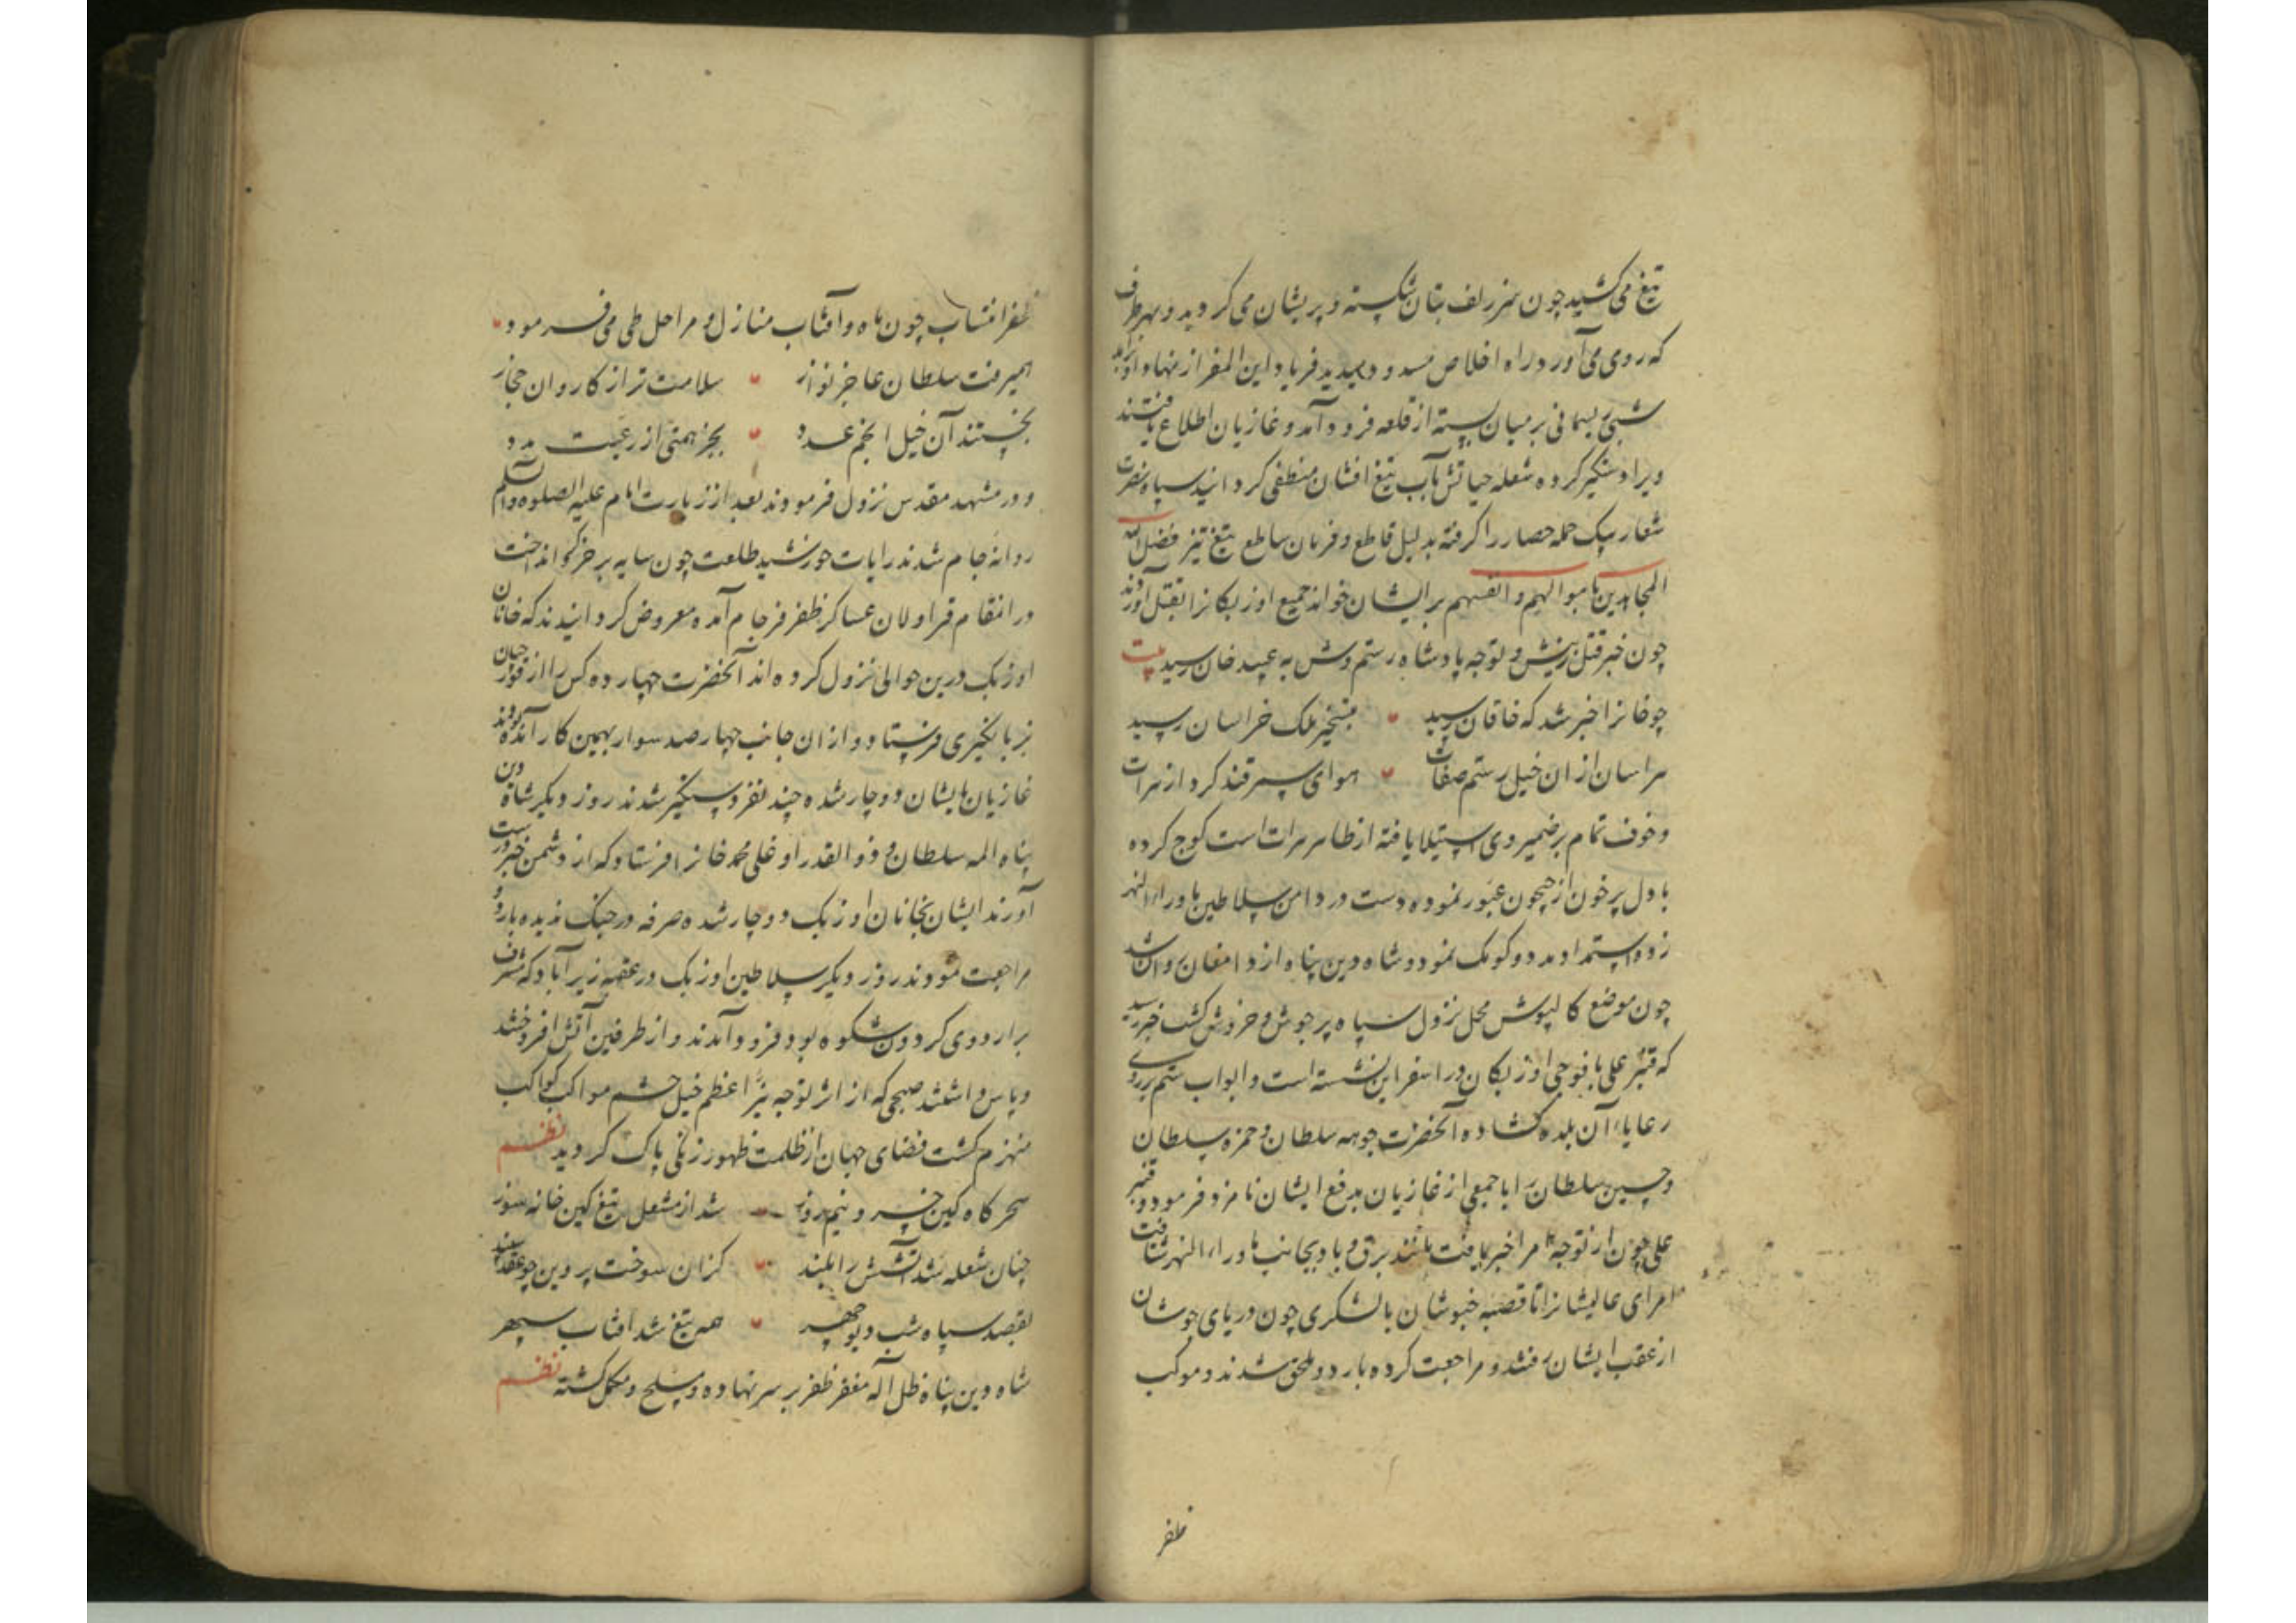 تیغ می کشید چون سر زلف بتان شکسته و پریشان می گردید و بهر طرف
که روی می آورد راه اخلاص مسدود میدید فریاد این المفر از نهاد او برآمد
شبی ریسمانی بر میان بسته از قلعه فرود آمد و غازیان اطلاع یافتند
ویرا دستگیر کرده شعله حیاتش بآب تیغ افشان منطفی گردانید سپاه نصرت
شعار بیک حمله حصار را گرفته بدلیل قاطع و فرمان ساطع تیغ تیز فضل الله
المجاهدین باموالهم و انفسهم بر ایشان خواند جمیع اوزبکانرا بقتل آوردند
چون خبر قتل زینش و توجه پادشاه رستم وش به عبید خان رسید بیت
چو خانرا خبر شد که خاقان رسید بتسخیر ملک خراسان رسید
هراسان ازان خیل رستم صفات هوای سمرقند کرد از هرات
و خوف تمام بر ضمیر وی استیلا یافته از ظاهر هرات است کوچ کرده
با دل پر خون از جیحون عبور نموده دست در دامن سلاطین ماوراء النهر
زده و استمداد مدد و کومک نمود و شاه دین پناه از دامغان روان شد
چون موضع کالپوش محل نزول سپاه پر جوش و خروش گشت خبر رسید
که قنبر علی با فوجی اوزبکان در اسفراین نشسته است و ابواب ستم بر روی
رعایاء آن بلده گشاده آنحضرت جوهه سلطان و حمزه سلطان
و حسین سلطان را با جمعی از غازیان بدفع ایشان نامزد فرمود و قنبر
علی چون از توجه امرا خبر یافت مانند برق و باد بجانب ماوراء النهر شتافت
امرای عالیشانرا تا قصبه خبوشان با لشکری چون دریای جوشان
از عقب ایشان رفتند و مراجعت کرده باردو ملحق شدند و موکب
ظفر
ظفر انتساب چون ماه و آفتاب منازل و مراحل طی می فرمود
همیرفت سلطان عاجز نواز سلامت تر از کاروان حجاز
بجستند آن خیل انجم عدد بجز همتی از رعیت مدد
و در مشهد مقدس نزول فرمودند بعد از زیارت امام علیه الصلوه والسلم
روانه جام شدند رایات خورشید طلعت چون سایه بر خرگرد انداخت
در انمقام قراولان عساکر ظفر فرجام آمده معروض گردانیدند که خانان
اوزبک درین حوالی نزول کرده اند آنحضرت چهارده کس را از قورچیان
بزبانگیری فرستاد و ازان جانب چهار صد سوار بهمین کار آمده بودند
غازیان بایشان دوچار شده چند نفر دستگیر شدند روز دیگر شاه دین
پناه المه سلطان و ذو القدر اوغلی محمد خانرا فرستاد که از دشمن خبر درست
آورند ایشان بخانان اوزبک دوچار شده صرفه در جنگ ندیده باردو
مراجعت نمودند روز دیگر سلاطین اوزبک در عقبه زیرآباد که مشرف
بر اردوی گردون شکوه بود فرود آمدند و از طرفین آتش افروختند
و پاس داشتند صبحی که از اثر توجه نیر اعظم خیل حشم مواکب کواکب
منهزم گشت فضای جهان از ظلمت ظهور زنگی پاک گردید نظم
سحرگاه کین خسرو نیم روز شد از مشعل تیغ کین خانه سوز
چنان شعله شد آتشش را بلند کزان سوخت پروین چو عقد سپند
بقصد سپاه شب دیو چهر همه تیغ شد آفتاب سپهر
شاه دین پناه ظل آله مغفر ظفر بر سر نهاده و مسلح و مکمل گشته نظم